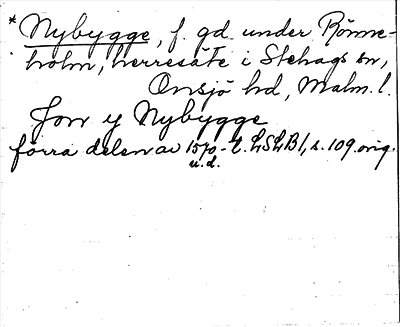 * Nybygge, f. gd. under Rönne-
holm, herresäte i Stehags sn,
Onsjö hd, Malm. l.
Jon y Nybygge
förra delen av 1570-t. LSLB 1, s. 109. orig.
u.d.